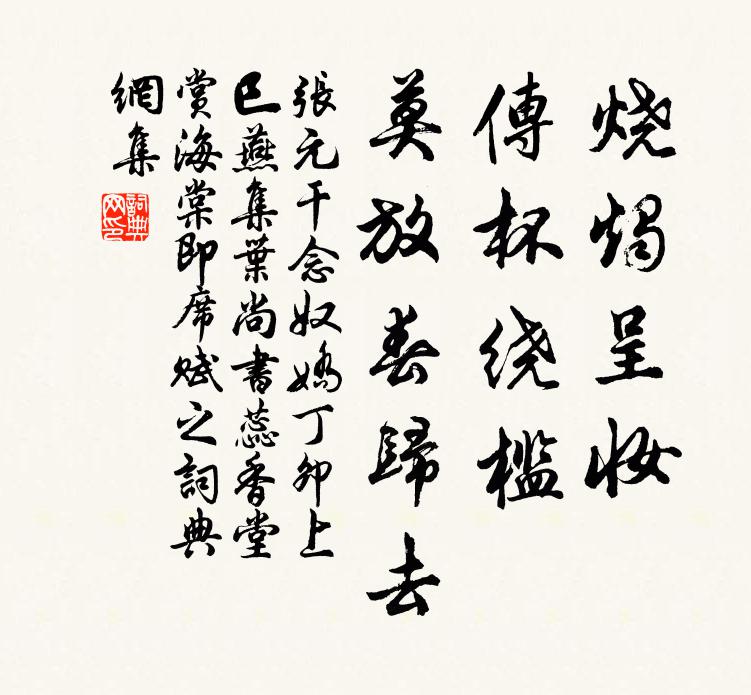 烧烛呈妆
傳杯绕檻
莫放春歸去
張元干念奴嬌丁卯上
巳燕集葉尚書蕊香堂
賞海棠即席賦之詞典
網集
詞典
网印